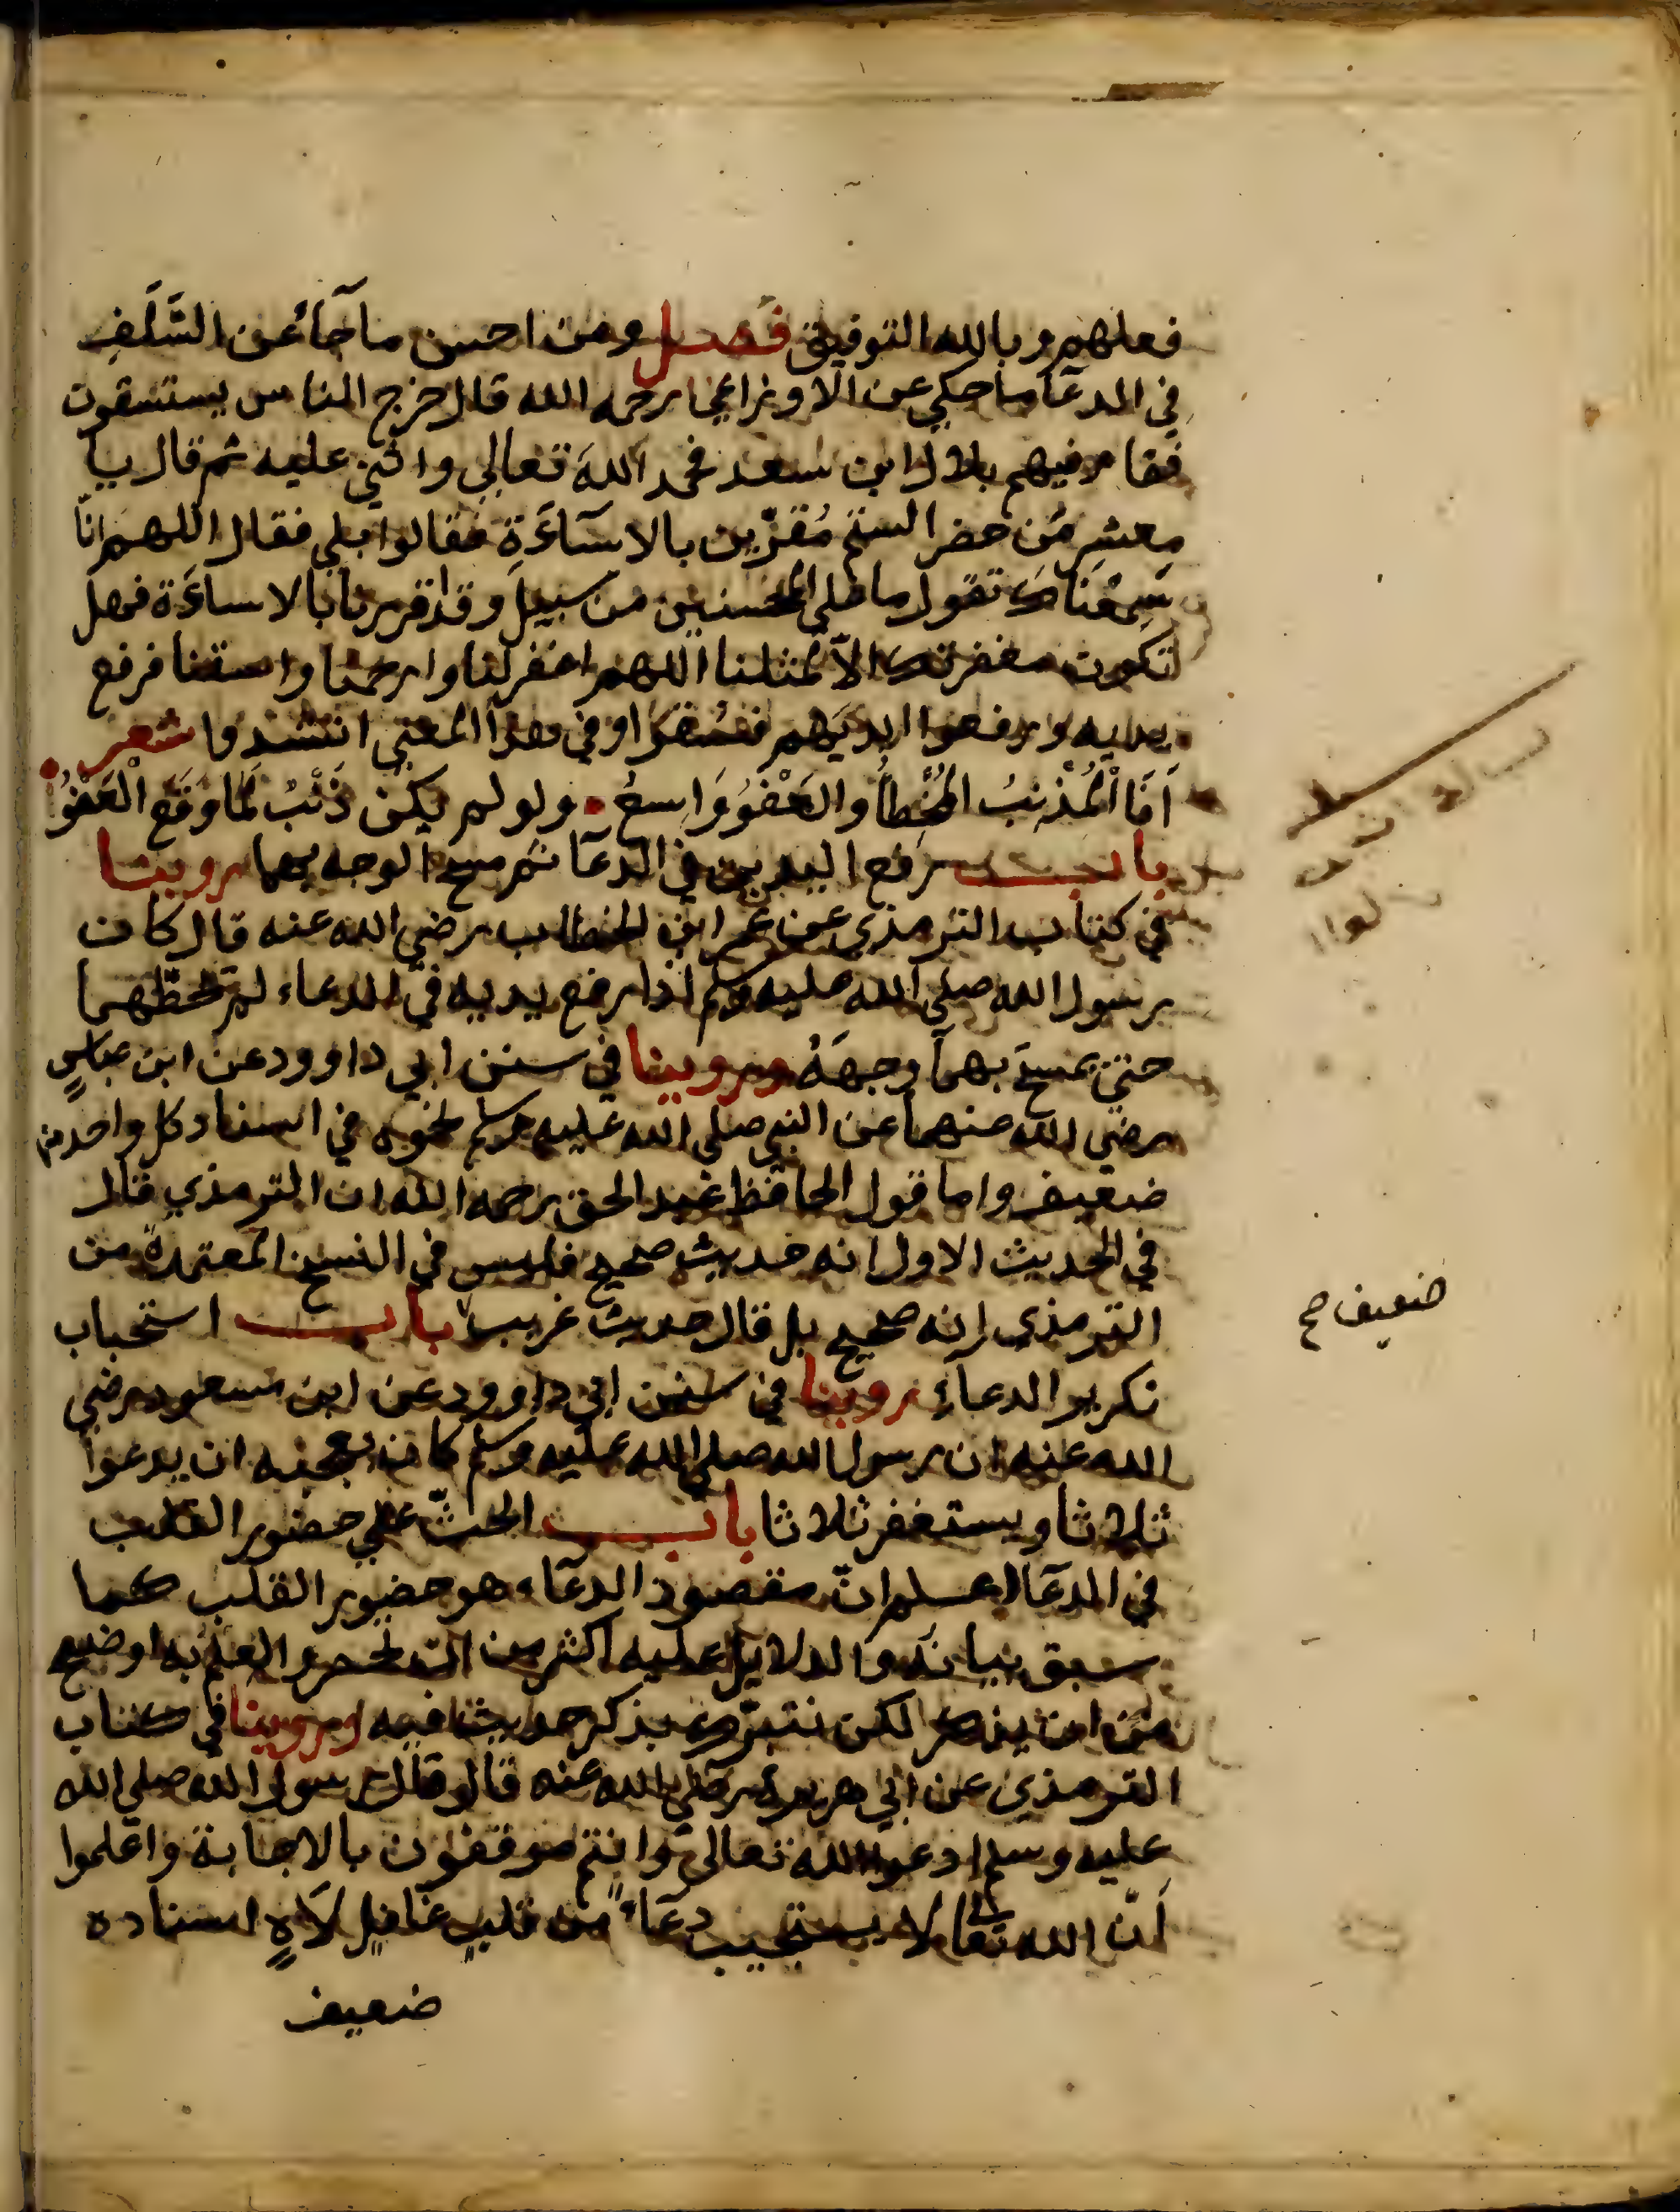 فعلهم وبالله التوفيق فصل ومن احسن ما جآءَ عن السَّلَفِ
في الدعآ ما حكي عن الاوزاعي رحمه الله قال خرج الناس يستسقون
فقام فيهم بلال ابن سعد فحمد اللهَ تعالي واثني عليه ثم قال يا
معشر مَن حضر الستم مُقرّين بالاسآءَةِ فقالوا بلي فقال اللهم انّا
سَمِعْنَاكَ تقول ما علي المحسنين من سبيل وقد اقررنا بالاساءَة فهل
تكون مغفرتك الاّ لمثلنا اللهم اغفر لنا وارحمنا واسقنا فرفع
يديه ورفعوا ايديَهم فسُقُوا وفي هذا المعني انشدوا شعر
اَنَا الْمُذْنِبُ الْخَطَّاُ والعَفْوُ وَاسِعُ ولو لم يكن ذَنْبٌ لَمَا وَقَع الْعَفْوُ
باب رفع اليدين في الدعآ ثم مسح الوجه بهما روينا
في كتاب الترمذي عن عمر ابن الخطاب رضي الله عنه قال كان
رسول الله صلي الله عليه وسلم اذا رفع يديه في الدعاء لم يحطّهما
حتي يمسحَ بهما وجهَهُ وروينا في سنن ابي داوود عن ابن عباسٍ
رضي الله عنهما عن النبي صلي الله عليه وسلم نحوه في اسناد كل واحد منهما
ضعيف واما قول الحافظ عبد الحق رحمه الله ان الترمذي قال
في الحديث الاول انه حديث صحيح فليس في النسخ المعتمدة من
الترمذي انه صحيح بل قال حديث غريب باب استحباب
تكرير الدعآءِ روينا في سنن ابي داوود عن ابن مسعود رضي
الله عنه ان رسول الله صلي الله عليه وسلم كان يعجبه ان يدعوا
ثلاثا ويستغفر ثلاثا باب الحثّ علي حضور القلب
في الدعآ اعلم انّ مقصود الدعآء هو حضور القلب كما
سبق بيانه والدلايل عليه اكثر من ان تحصر والعلم به اوضح
من ان يذكر لكن نتبرّك بذكر حديث فيه وروينا في كتاب
الترمذي عن ابي هريرة رضي الله عنه قال قال رسول الله صلي الله
عليه وسلم ادعوا الله تعالى وانتم موقنون بالاجابة واعلموا
اَنّ الله تعالى لا يستجيب دعَآءً من قلبٍ غافلٍ لاَهٍ اسناده
ضعيف
ضعيف صح